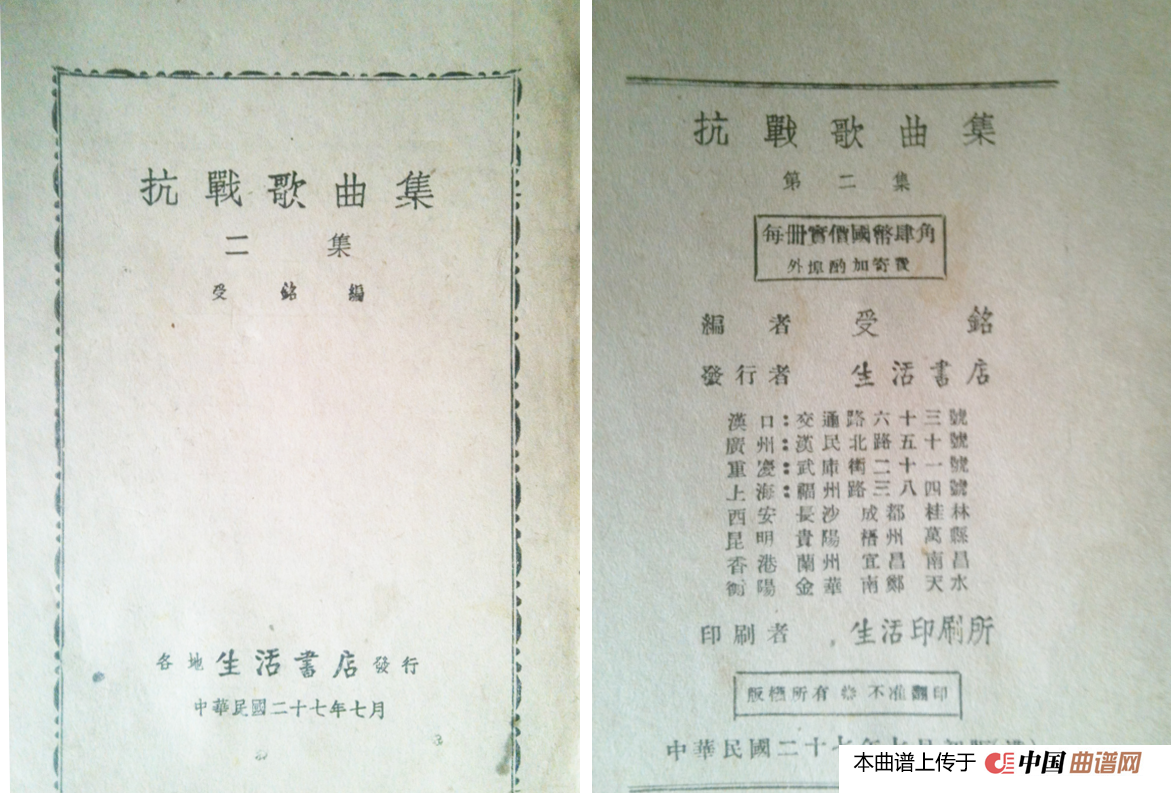 抗戰歌曲集
二集
受銘編
各地生活書店發行
中華民國二十七年七月
3
抗戰歌曲集
第二集
每冊實價國幣肆角
外埠酌加寄費
編者 受銘
發行者 生活書店
漢口：交通路六十三號
廣州：漢民北路五十號
重慶：武庫街二十一號
上海：福州路三八四號
西安 長沙 成都 桂林
昆明 貴陽 梧州 萬縣
香港 蘭州 宜昌 南昌
衡陽 金華 南鄭 天水
印刷者 生活印刷所
版權所有 不准翻印
中華民國二十七年七月初版
本曲谱上传于 中国曲谱网